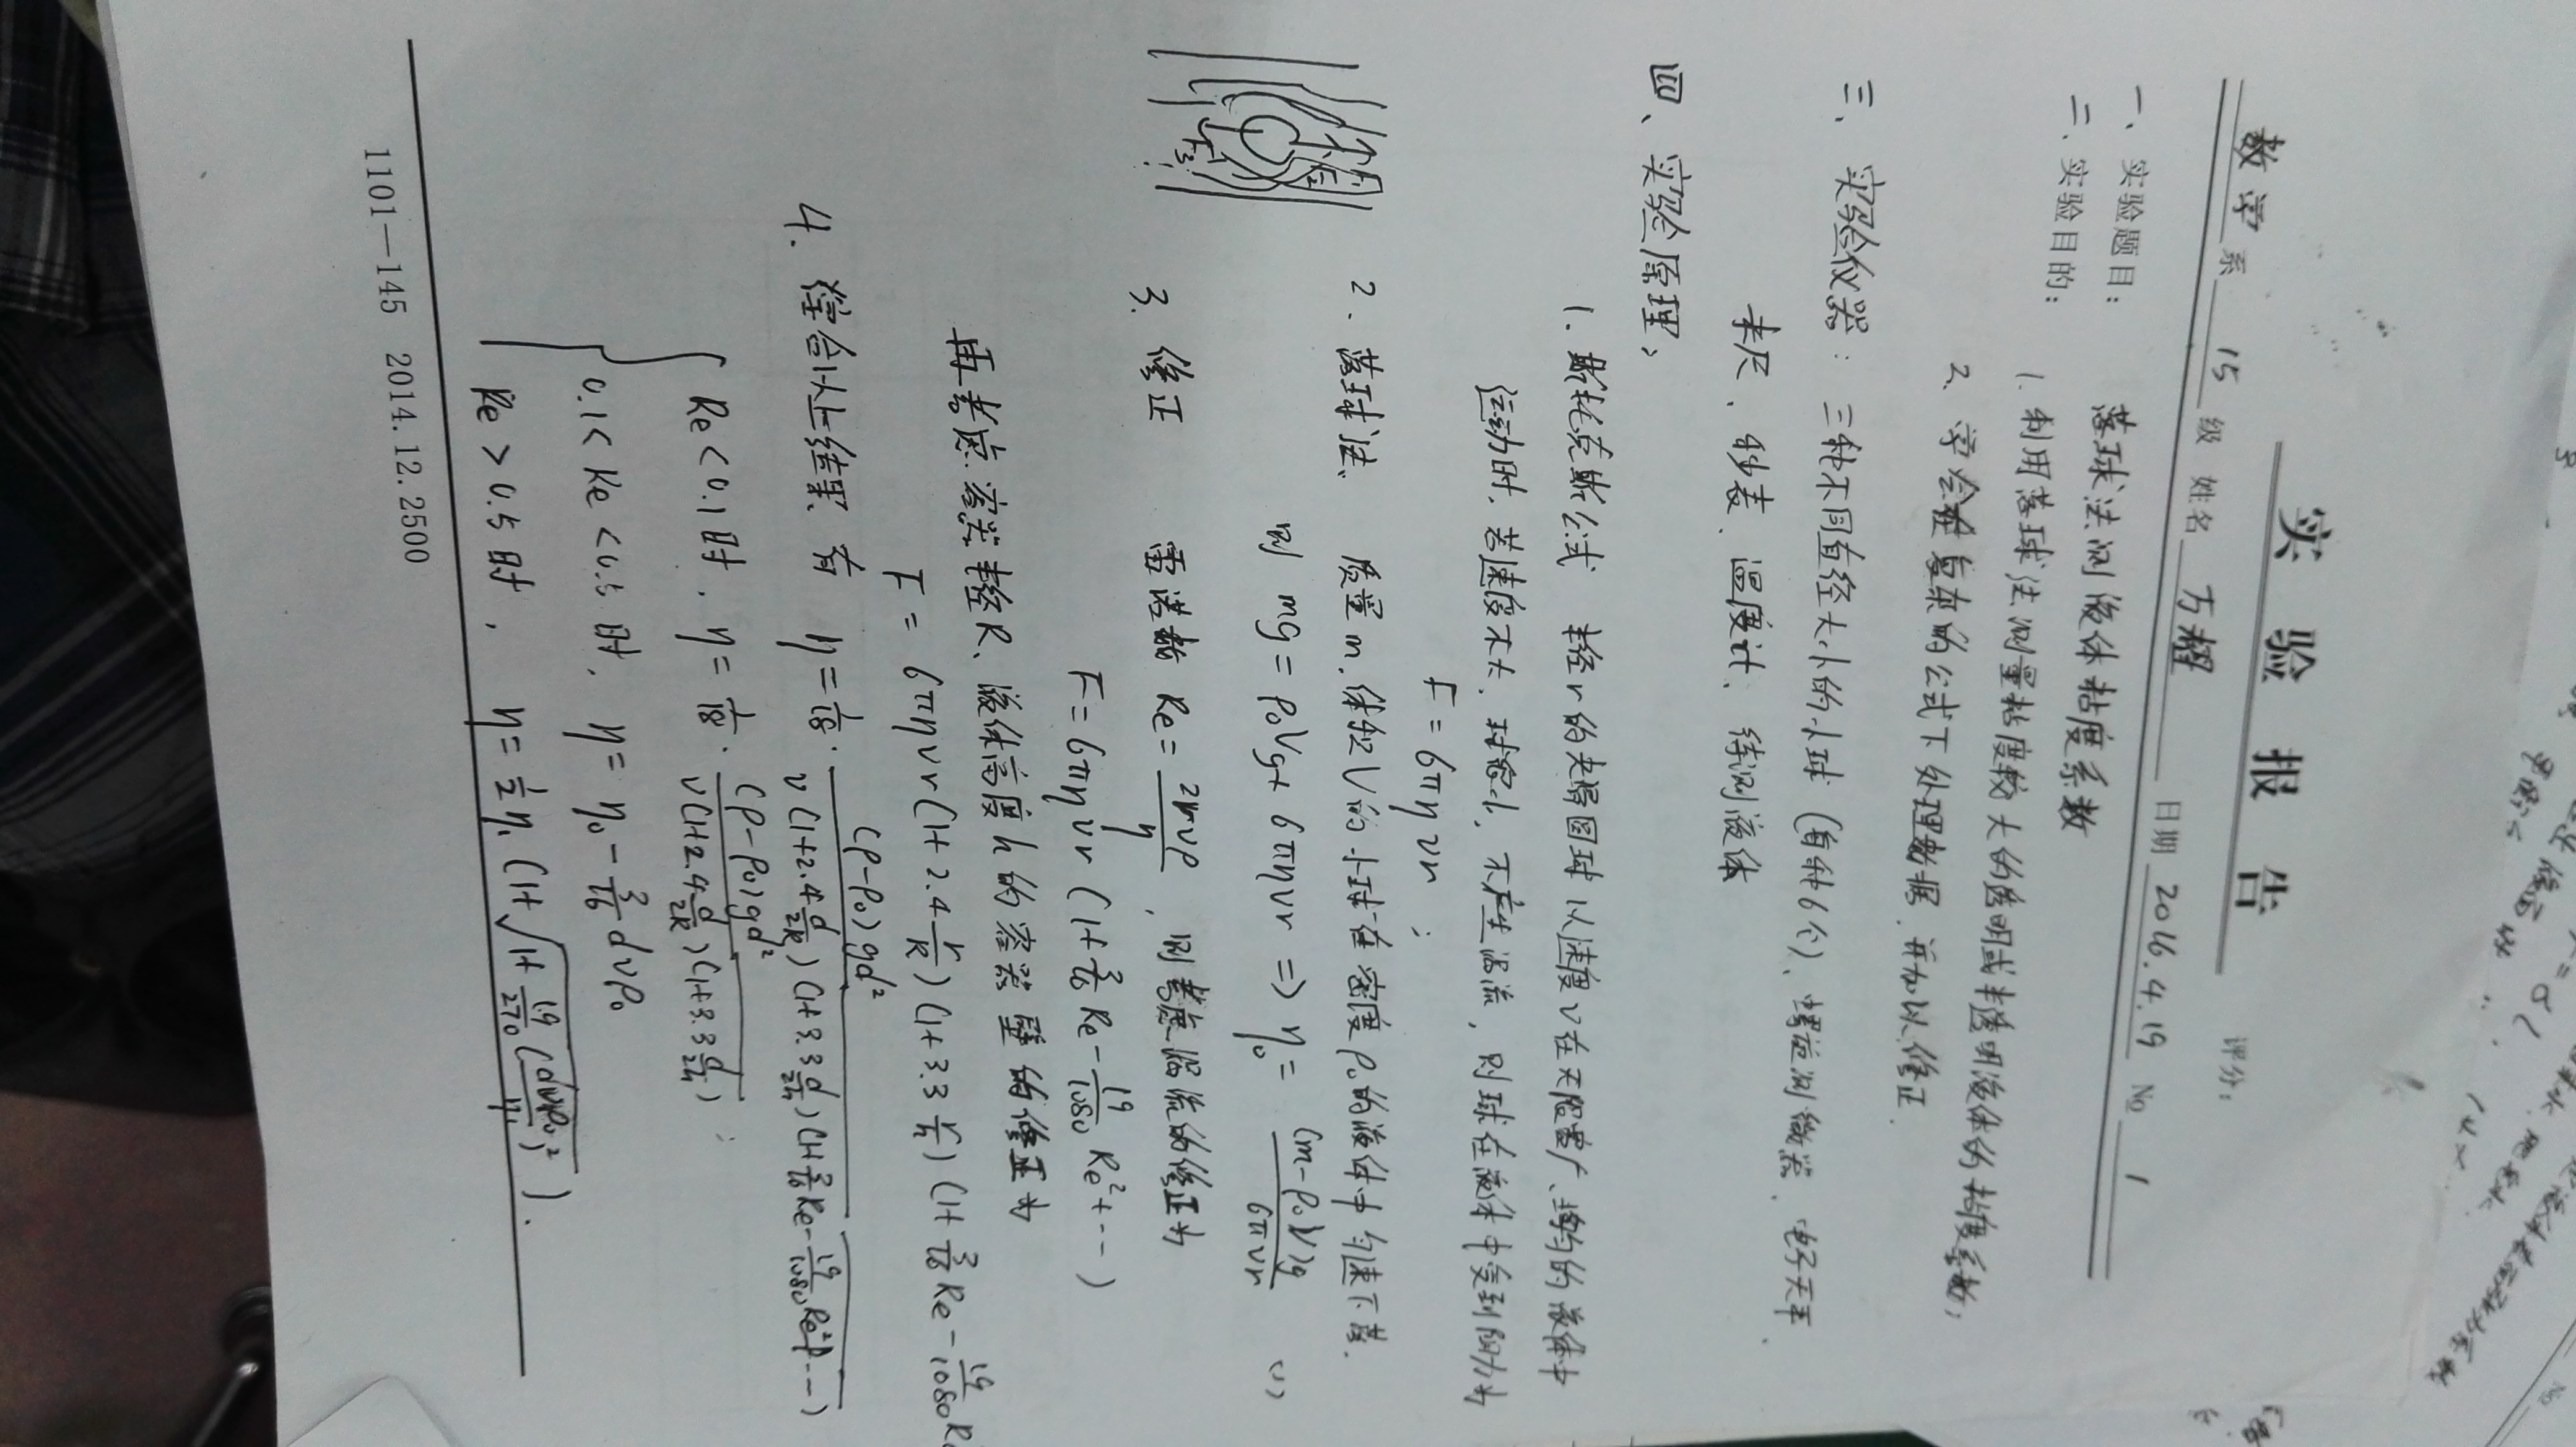 实验报告
评分：
数学系 15级 姓名 方耀 日期 2016.4.19 No 1
一、实验题目： 落球法测液体粘度系数
二、实验目的： 1. 利用落球法测量粘度较大的透明或半透明液体的粘度系数；
2. 学会在复杂的公式下处理数据，并加以修正.
三、实验仪器：三种不同直径大小的小球（每种6个）、螺旋测微器、电子天平、
米尺、秒表、温度计、待测液体
四、实验原理：
1. 斯托克斯公式 半径r的光滑圆球以速度v在无限宽广、均匀的液体中
运动时，若速度不大，球很小，不产生涡流，则球在液体中受到阻力为
F = 6πηvr；
2. 落球法 质量m、体积V的小球在密度ρ₀的液体中匀速下落.
则 mg = ρ₀Vg + 6πηvr ⇒ η₀ = (m-ρ₀V)g / 6πvr (1)
3. 修正 雷诺数 Re = 2rvρ/η ，则考虑涡流的修正为
F = 6πηvr (1+3/16 Re - 19/1080 Re²+---)
再考虑容器半径R、液体高度h的容器壁的修正为
F = 6πηvr(1+2.4 r/R)(1+3.3 r/h)(1+3/16 Re - 19/1080 R
4. 综合以上结果，有 η = 1/18 · (ρ-ρ₀)gd² / v(1+2.4 d/2R)(1+3.3 d/2h)(1+3/16 Re - 19/1080 Re²+---)
Re < 0.1时，η = 1/18 · (ρ-ρ₀)gd² / v(1+2.4 d/2R)(1+3.3 d/2h) ；
0.1< Re <0.5时，η = η₀ - 3/16 dvρ₀
Re > 0.5时，η = 1/2 η₁ (1+√(1+ 19/270 (dvρ₀/η₁)²) ).
1101—145 2014.12.2500